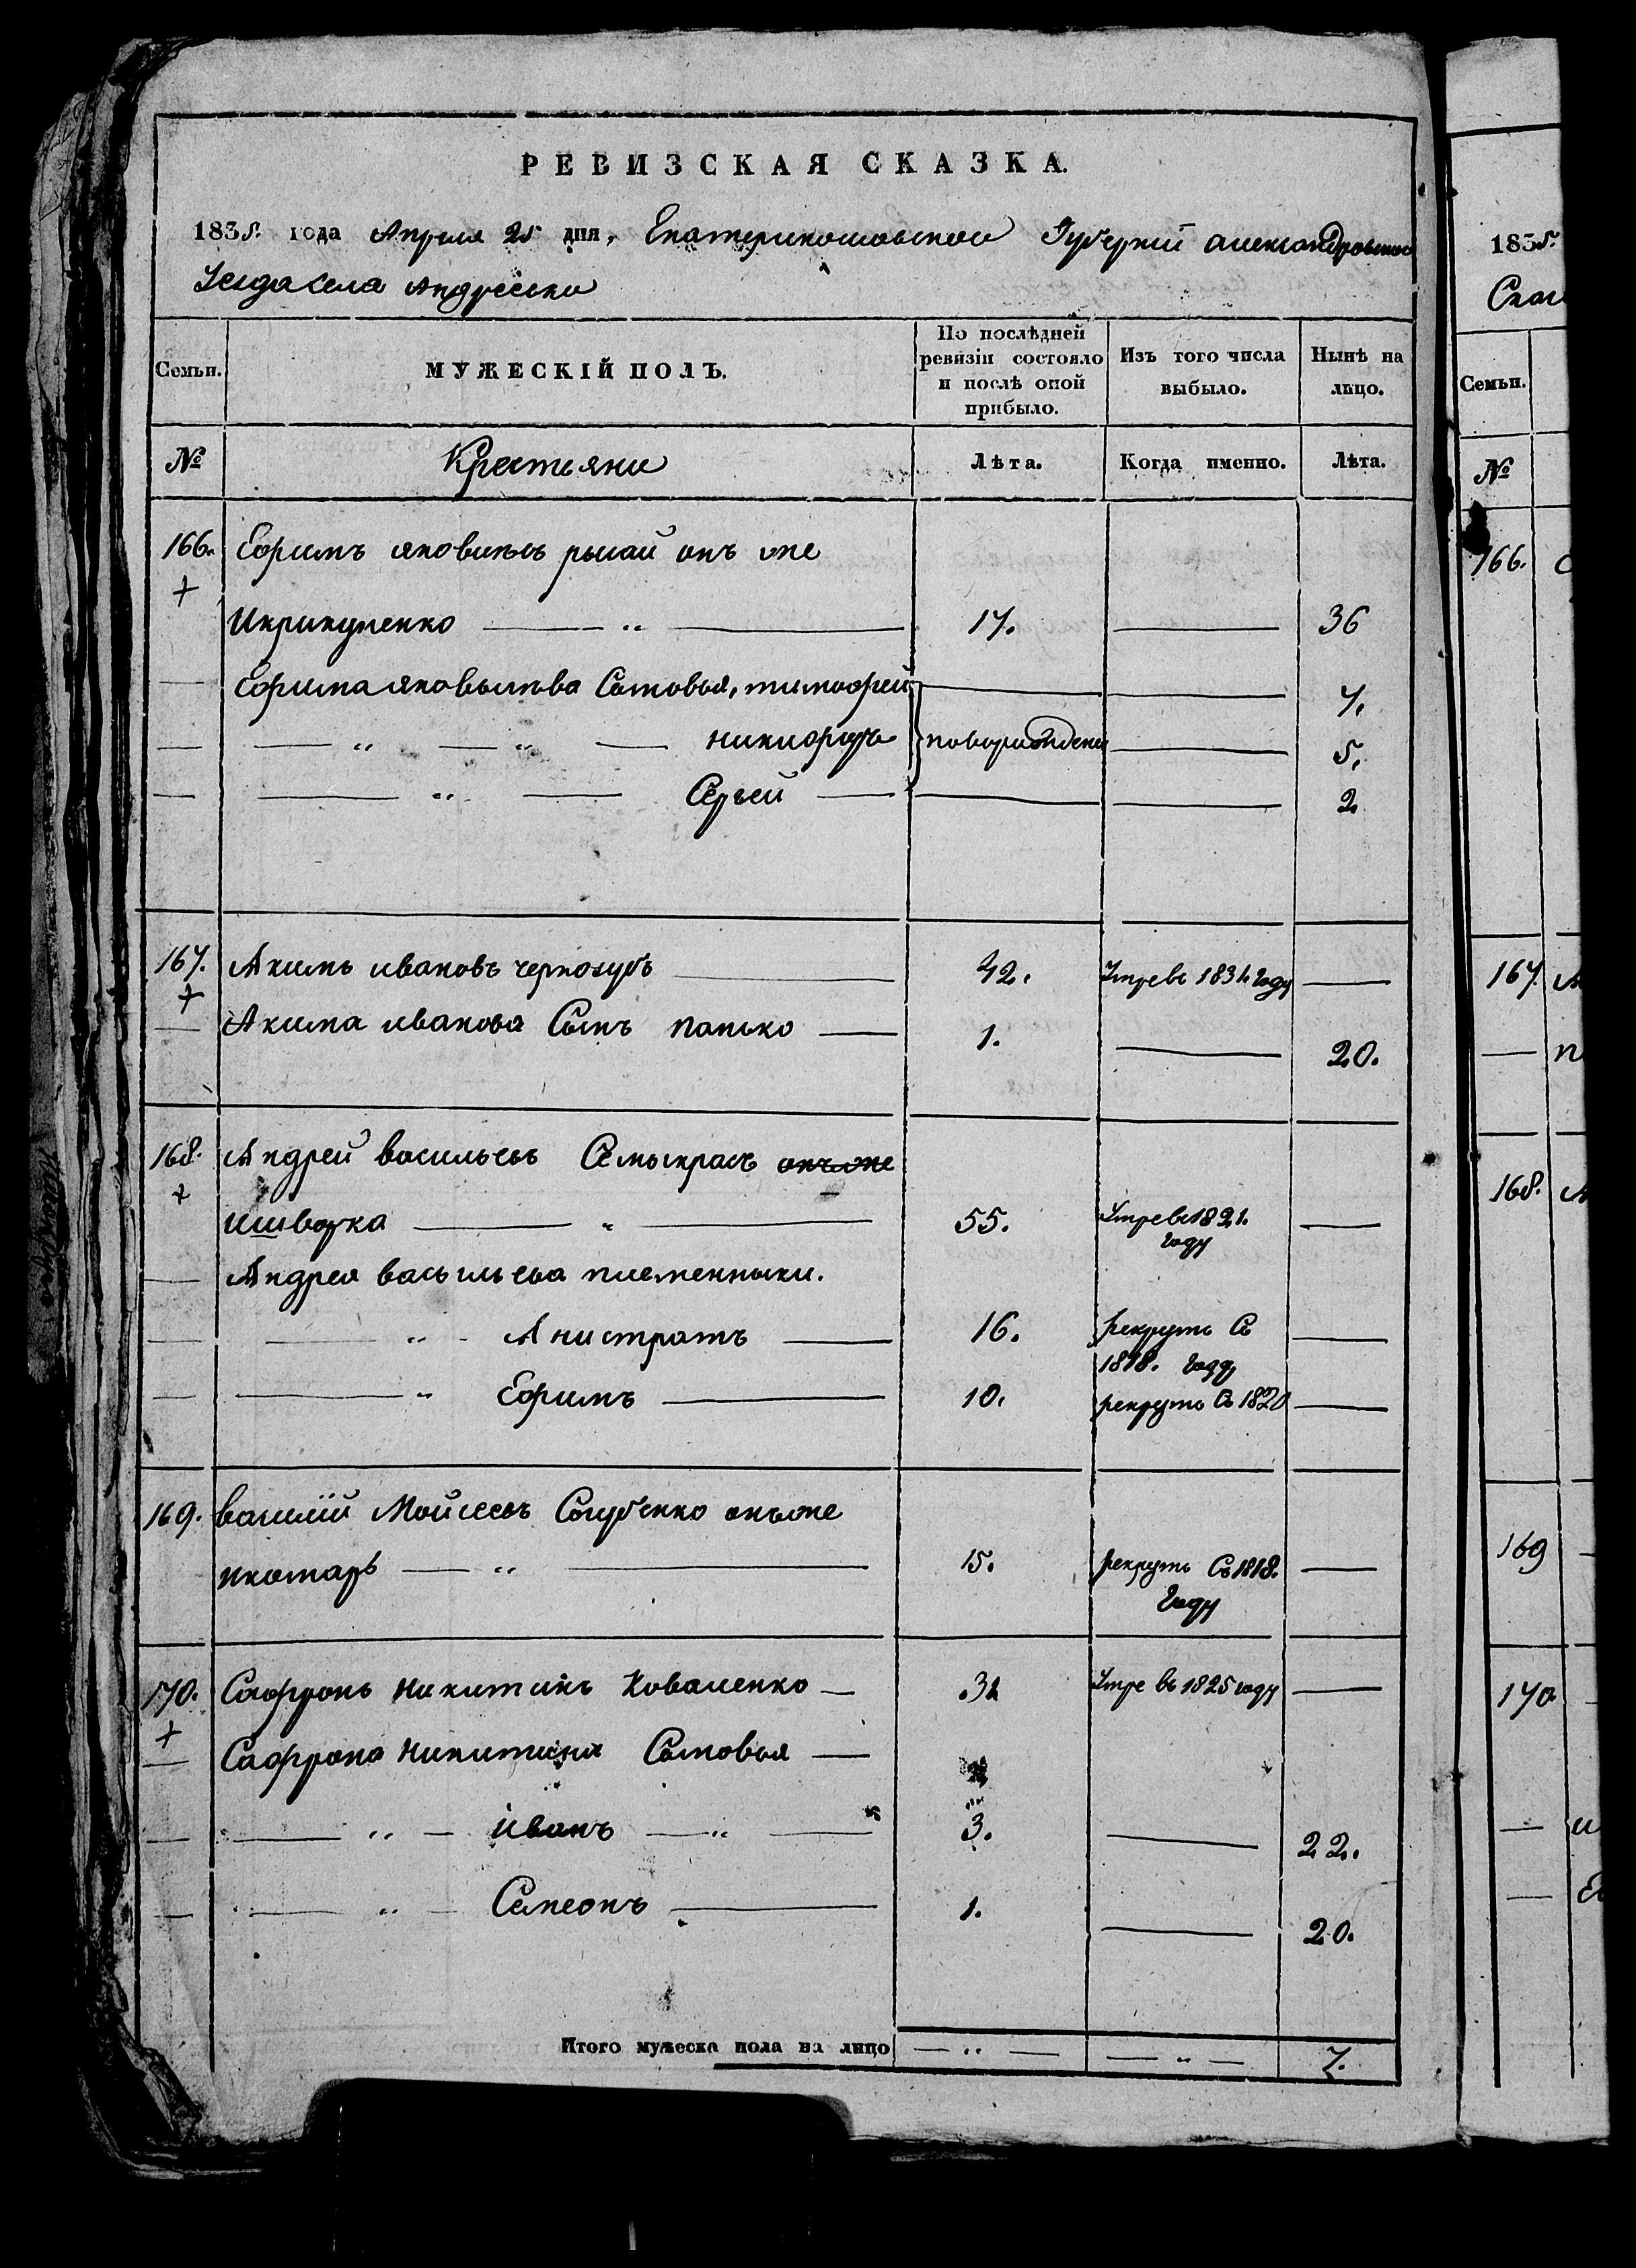 РЕВИЗСКАЯ СКАЗКА.
1835. года Апреля 25 дня, Екатеринославской Губерній Александровскаго
Уезда Села Андреевки
Семьи.
МУЖЕСКІЙ ПОЛЪ.
По послѣдней ревизіи состояло и послѣ оной прибыло.
Изъ того числа выбыло.
Нынѣ на лицо.
№
Крестьяни
Лѣта.
Когда именно.
Лѣта.
166. Ефимъ яковлевъ онъ же
17. 36
Ефима яковлева Сыновья, тимофей 7.
никифоръ новорожденны 5.
Сергей 2
167. Акимъ ивановъ чернозубъ 42. Умре въ 1831. году
Акима иванова Сынъ панько 1. 20.
168. Андрей васильевъ онъ же
ишворка 55. Умре въ 1821. году
Андрея васильева племенныки.
Анистратъ 16. рекрутъ Съ 1818. году
Ефимъ 10. рекрутъ Съ 1820
169. василій Мойсеевъ Согубенко онъ же
15. рекрутъ Съ 1818. году
170. Софронъ Никитинъ Коваленко 31 Умре въ 1825 году
Софрона Никитина Сыновья
иванъ 3. 22.
Симеонъ 1. 20.
Итого мужеска пола на лицо 7.
1835.
Семьи.
№
166.
167.
168.
169
170